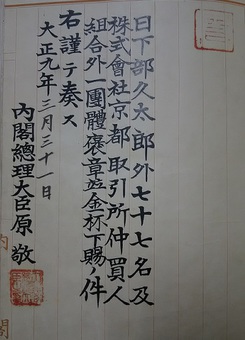 日下部久太郎外七十七名及
株式會社京都取引所仲買人
組合外一團體褒章並金杯下賜ノ件
右謹テ奏ス
大正九年三月三十一日
內閣總理大臣原敬
內閣